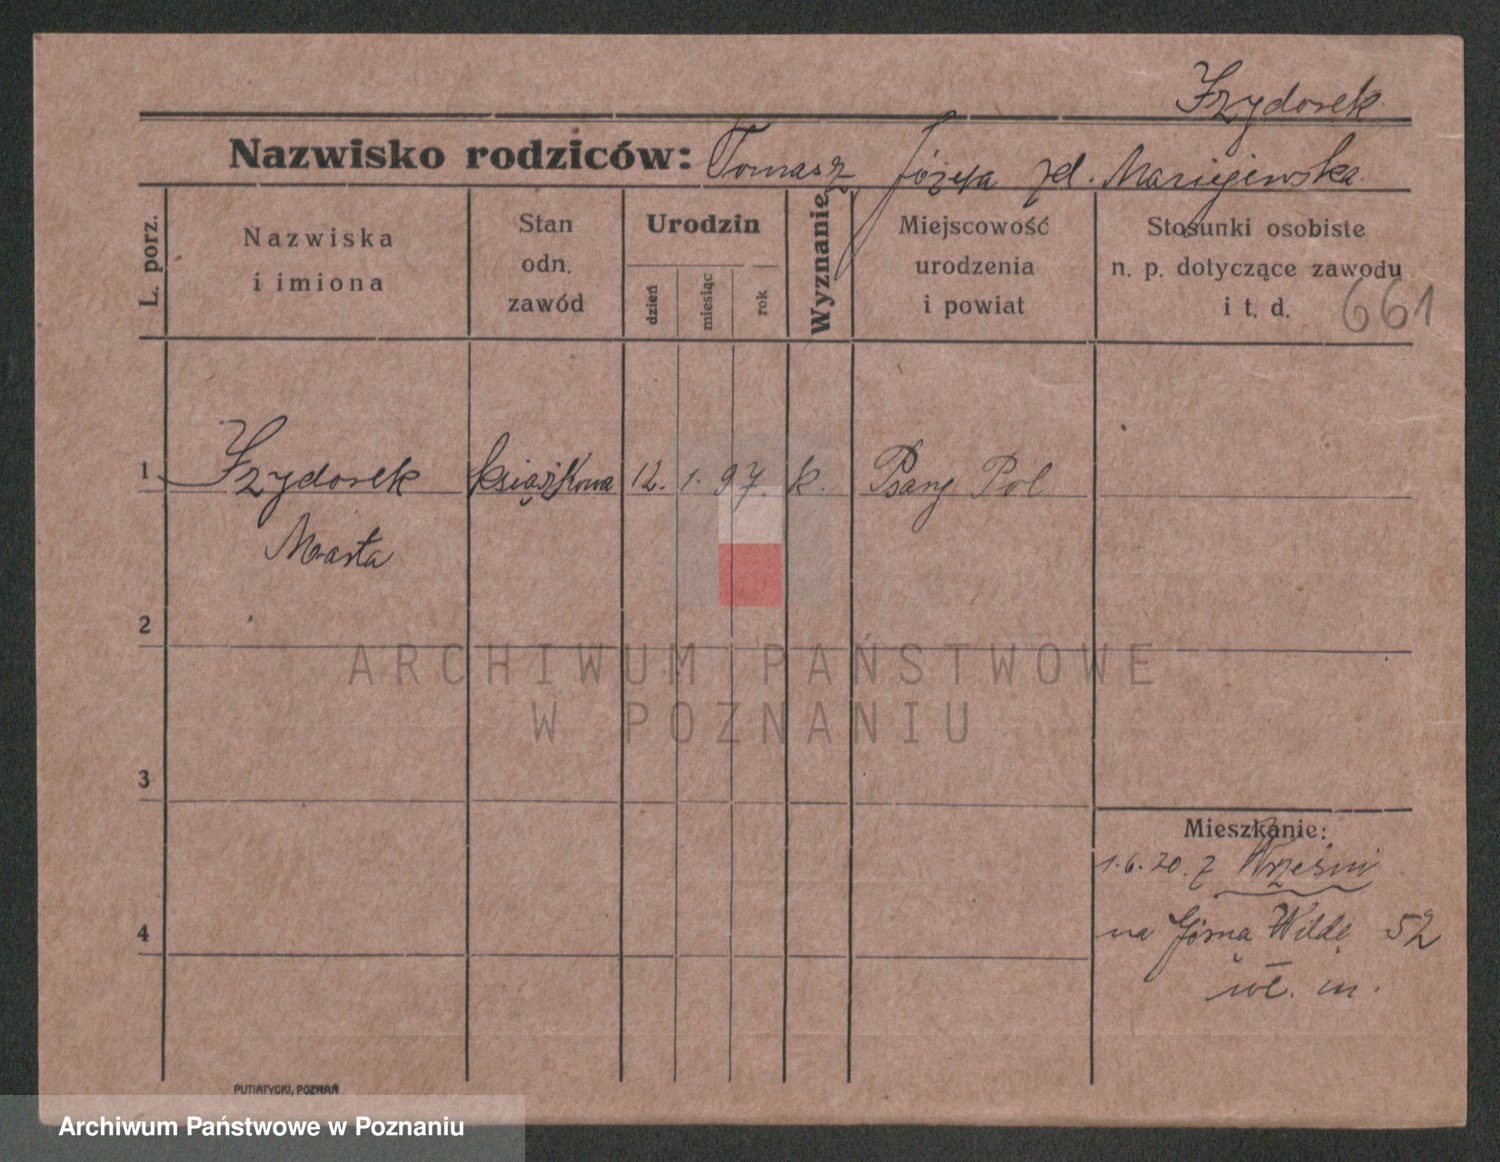 Izydorek
Nazwisko rodziców: Tomasz Józefa zd. Maciejewska
L. porz.
Nazwiska
i imiona
Stan
odn.
zawód
Urodzin
dzień
miesiąc
rok
Wyznanie
Miejscowość
urodzenia
i powiat
Stosunki osobiste
n. p. dotyczące zawodu
i t. d.
661
1 Izydorek książkowa 12. 1. 97. k. Psary Pol
Marta
2
3
4
ARCHIWUM PAŃSTWOWE
W POZNANIU
Mieszkanie:
1.6.20. z Wrześni
na Górna Wildę 52
wł. m.
PUTIATYCKI, POZNAŃ
Archiwum Państwowe w Poznaniu